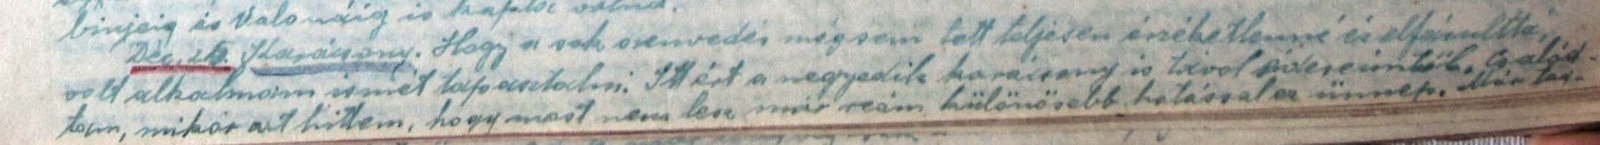 binjeig és Valonáig is kapta volna.
Dec. 24. Karácsony. Hogy a sok szenvedés mégsem tett teljesen érzéketlenné és elfásulttá,
volt alkalmam ismét tapasztalni. Itt ért a negyedik karácsony is távol édeseimtől. Csalód-
tam, mikor azt hittem, hogy most nem lesz már reám különösebb hatással ez ünnep. Már